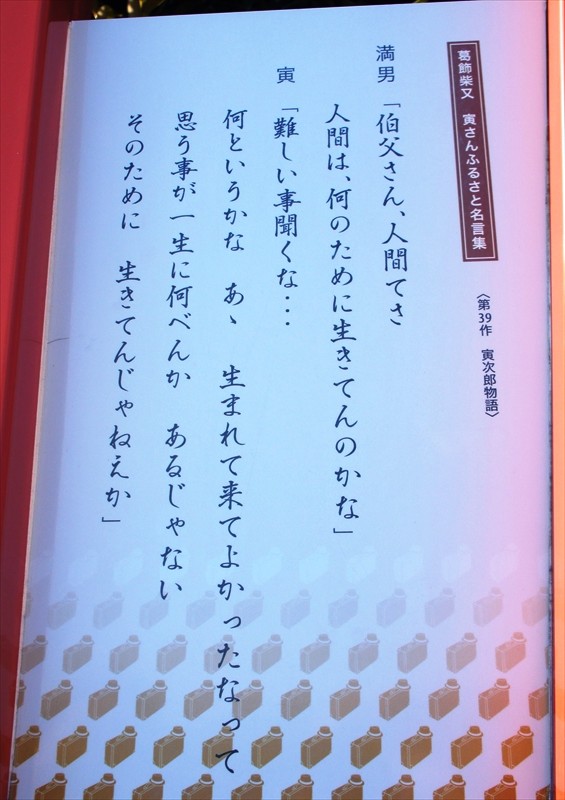 葛飾柴又 寅さんふるさと名言集
〈第39作 寅次郎物語〉
満男「伯父さん、人間てさ
人間は、何のために生きてんのかな」
寅「難しい事聞くな・・・
何というかな あゝ 生まれて来てよかったなって
思う事が一生に何べんか あるじゃない
そのために 生きてんじゃねえか」